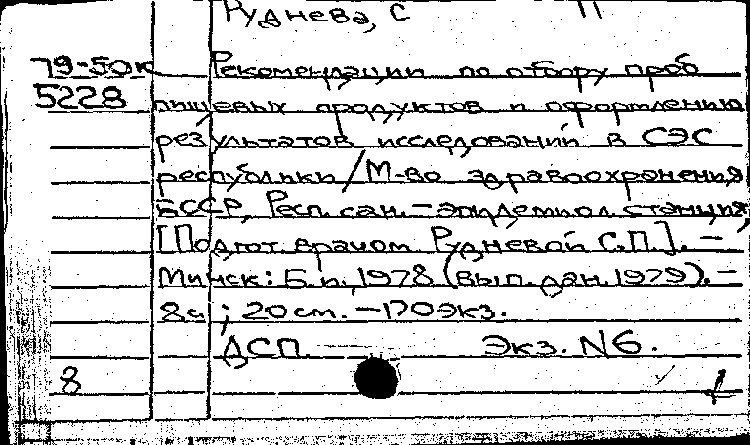 Руднева, С П
79-50к Рекомендации по отбору проб
5228 пищевых продуктов и оформлению
результатов исследований в СЭС
республики/М-во здравоохранения
БССР, Респ. сан.-эпидемиол. станция;
[Подгот. врачом Рудневой С.П.]. –
Минск: Б.и., 1978 (вып. дан. 1979). –
8с; 20 см. – 170 экз.
ДСП. Экз. N6.
8